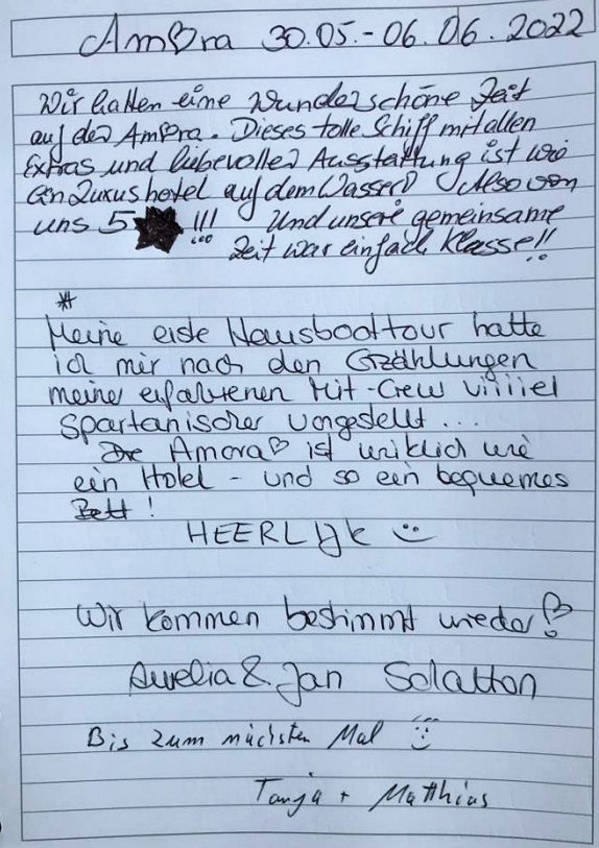 Am♡ra 30.05.-06.06.2022
Wir hatten eine wunderschöne Zeit
auf der Am♡ra. Dieses tolle Schiff mit allen
Extras und liebevoller Ausstattung ist wie
ein Luxushotel auf dem Wasser♡ Also von
uns 5★!!! Und unsere gemeinsame
Zeit war einfach Klasse!!
*
Meine erste Hausboottour hatte
ich mir nach den Erzählungen
meiner erfahrenen Mit-Crew viiiiel
spartanischer vorgestellt...
Die Amora♡ ist wirklich wie
ein Hotel - und so ein bequemes
Bett!
HEERLIJK :)
Wir kommen bestimmt wieder!
Aurelia & Jan
Bis zum nächsten Mal :)
Tanja + Matthias